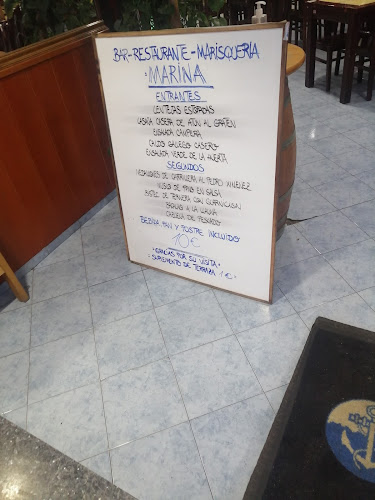 BAR-RESTAURANTE-MARISQUERIA
"MARINA
ENTRANTES
LENTEJAS ESTOFADAS
LASAÑA CASERA DE ATUN AL GRATEN
ENSALADA CAMPERA
CALDO GALLEGO CASERO
ENSALADA VERDE DE LA HUERTA
SEGUNDOS
MEDALLONES DE CARRILLERA AL PEDRO XIMENEZ
MUSLO DE PAVO EN SALSA
BISTEC DE TERNERA CON GUARNICION
A LA
DE PESCADO
BEBIDA, PAN Y POSTRE INCLUIDO
10€
GRACIAS POR SU VISITA
SUPLEMENTO DE TERRAZA 1€